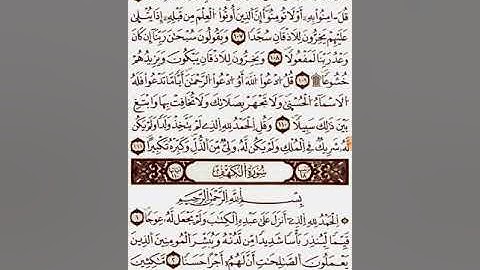 قُلَ اٰمِنُواْ بِهِۦٓ أَوْ لَا تُومِنُوٓاْ إِنَّ ٱلذِينَ أُوتُواْ ٱلْعِلْمَ مِن قَبْلِهِۦٓ إِذَا يُتْلَىٰ
عَلَيْهِمْ يَخِرُّونَ لِلَاذْقَانِ سُجَّدًا ١٠٧ وَيَقُولُونَ سُبْحَٰنَ رَبِّنَآ إِن كَانَ
وَعْدُ رَبِّنَا لَمَفْعُولًا ١٠٨ وَيَخِرُّونَ لِلَاذْقَانِ يَبْكُونَ وَيَزِيدُهُمْ
خُشُوعًا ۩ ١٠٩ قُلُ ٱدْعُواْ ٱللَّهَ أَوُ ٱدْعُواْ ٱلرَّحْمَٰنَ أَيًّا مَّا تَدْعُواْ فَلَهُ
ٱلَاسْمَآءُ ٱلْحُسْنَىٰ وَلَا تَجْهَرْ بِصَلَاتِكَ وَلَا تُخَافِتْ بِهَا وَٱبْتَغِ
بَيْنَ ذَٰلِكَ سَبِيلًا ١١٠ وَقُلِ ٱلْحَمْدُ لِلهِ ٱلذِے لَمْ يَتَّخِذْ وَلَدًا وَلَمْ يَكُن
لَّهُۥ شَرِيكٌ فِے ٱلْمُلْكِ وَلَمْ يَكُن لَّهُۥ وَلِيٌّ مِّنَ ٱلذُّلِّ وَكَبِّرْهُ تَكْبِيرًا ١١١
سُورَةُ ٱلْكَهْفِ
بِسْمِ ٱللَّهِ ٱلرَّحْمَٰنِ ٱلرَّحِيمِ
ٱلْحَمْدُ لِلهِ ٱلذِےٓ أَنزَلَ عَلَىٰ عَبْدِهِ ٱلْكِتَٰبَ وَلَمْ يَجْعَل لَّهُۥ عِوَجًا ١
قَيِّمًا لِّيُنذِرَ بَأْسًا شَدِيدًا مِّن لَّدُنْهُ وَيُبَشِّرَ ٱلْمُومِنِينَ ٱلذِينَ
يَعْمَلُونَ ٱلصَّٰلِحَٰتِ أَنَّ لَهُمُۥٓ أَجْرًا حَسَنًا ٢ مَّٰكِثِينَ